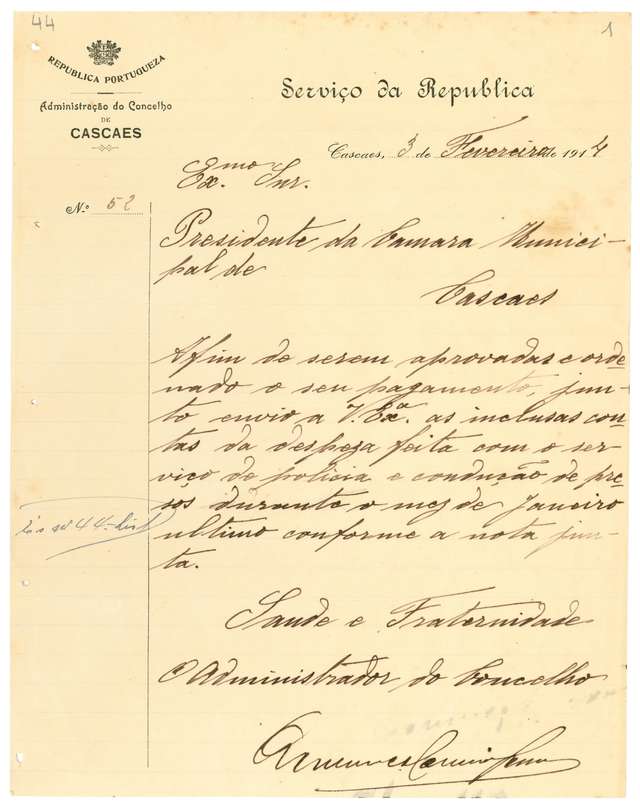 44
1
REPUBLICA PORTUGUEZA
Administração do Concelho
DE
CASCAES
Serviço da Republica
Cascaes, 3 de Fevereiro de 1914
Exmo Snr.
Nº 52
Presidente da Camara Munici-
pal de
Cascaes
Afim de serem aprovadas e orde
nado o seu pagamento, jun-
to envio a V. Exª. as inclusas con
tas da despeza feita com o ser
viço de policia e condução de pre
sos durante o mez de Janeiro
ultimo conforme a nota jun-
ta.
44
Saude e Fraternidade
O Administrador do Concelho